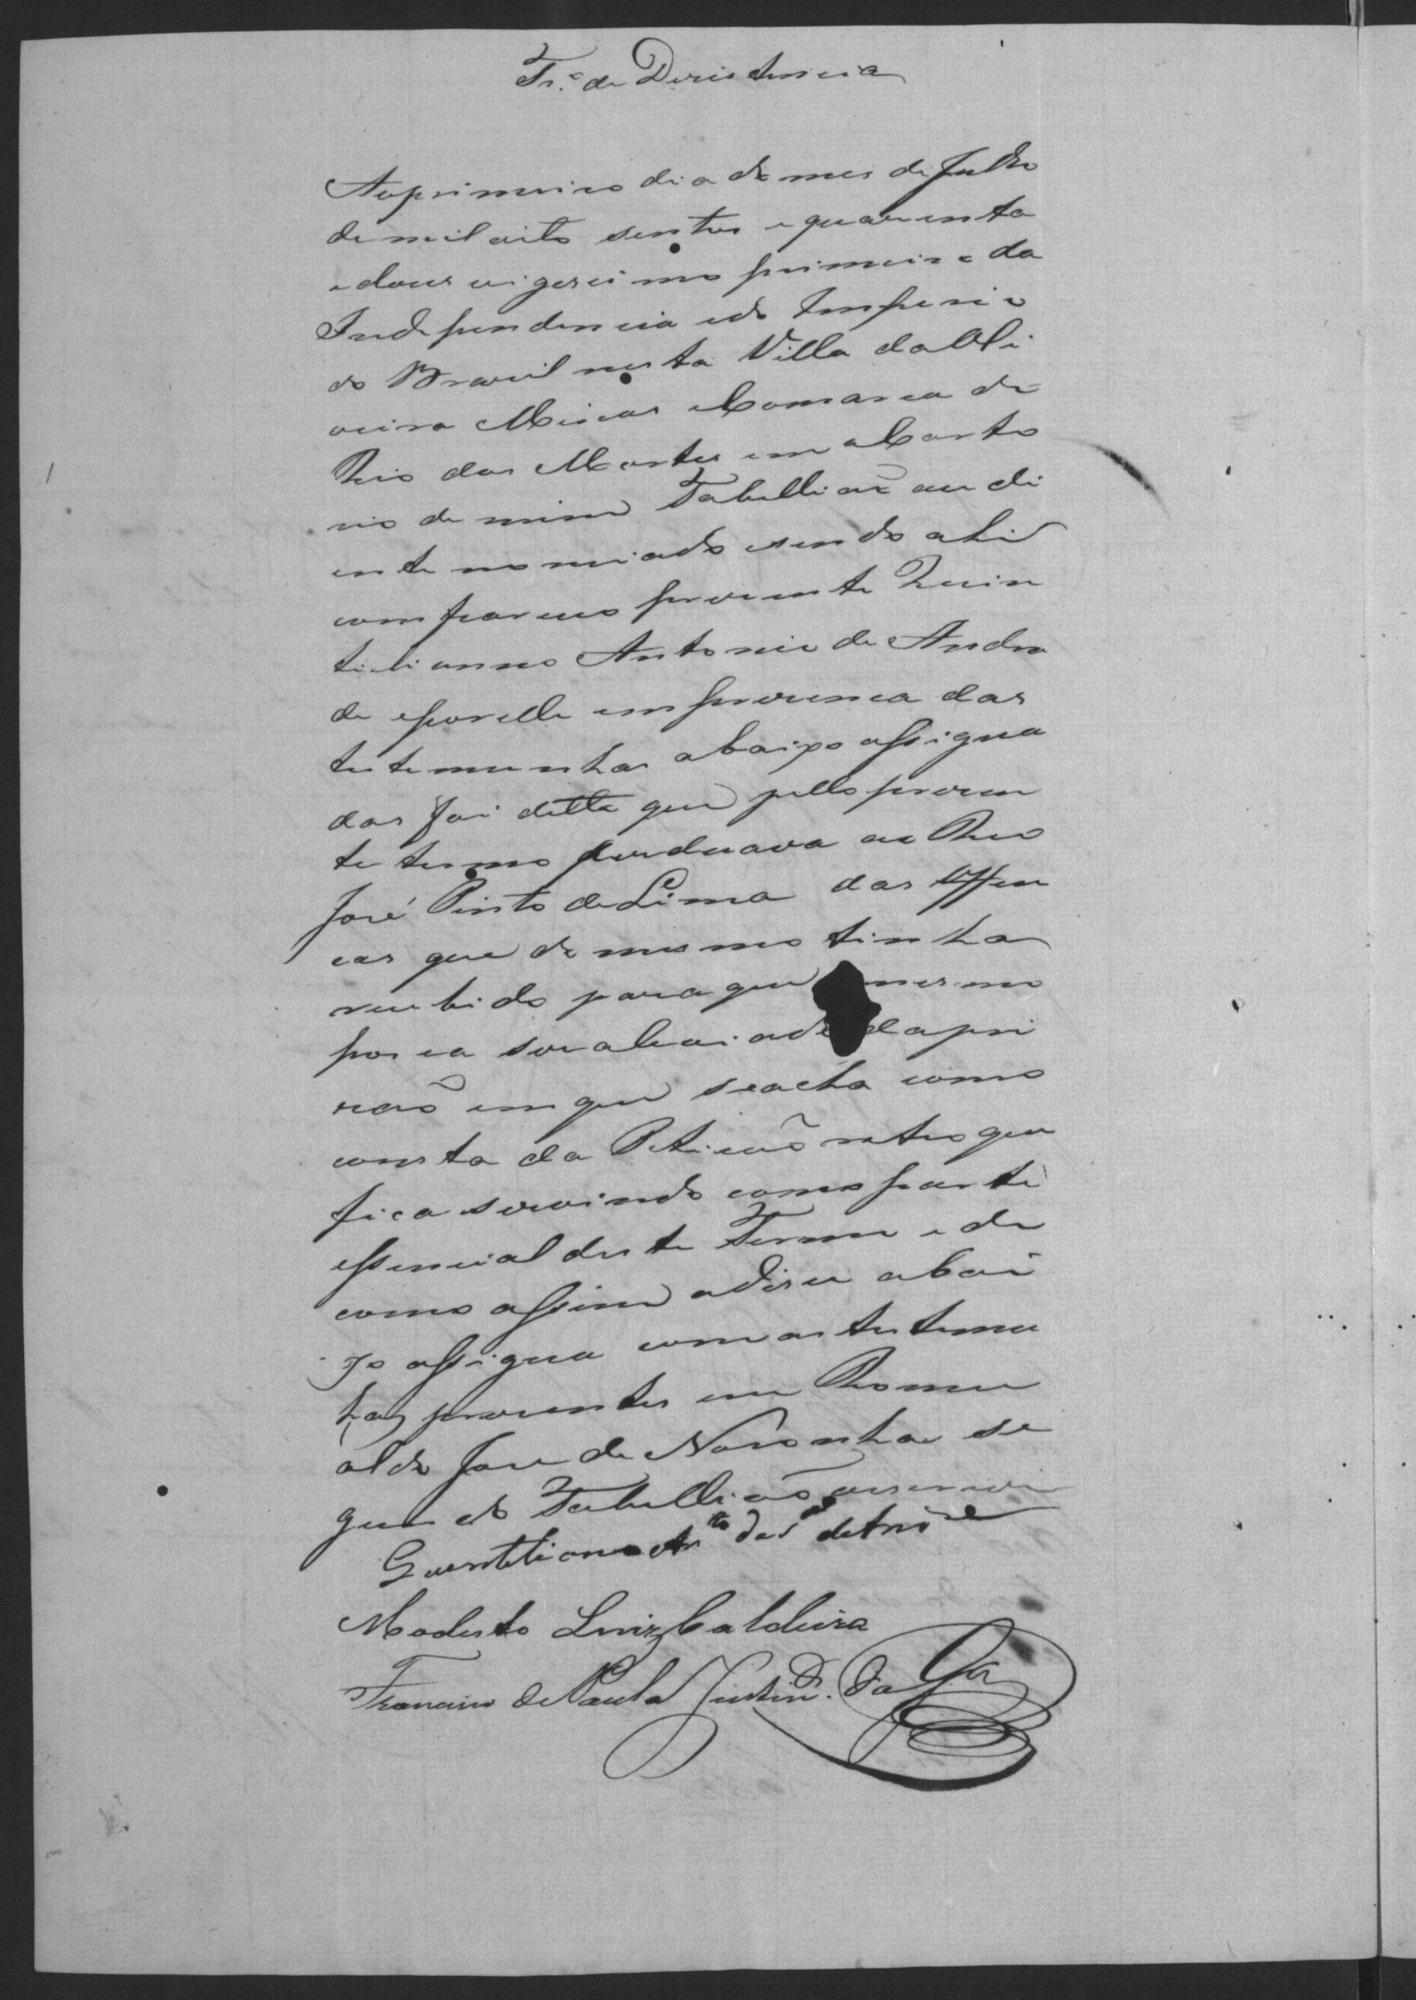 Tr.º de Dezistencia
Ao primeiro dia do mes de Julho
de mil oito sentos e quarenta
e dous vigesimo primeiro da
Independencia e do Imperio
do Brazil nesta Villa da Oli
veira Minas e Comarca do
Rio das Mortes em o Carto
rio de mim Tabelliaõ au di
ente nomiado e sendo ahi
compareceo prezente Quin
tilianno Antonio de Andra
de e por elle em prezenca das
testemunhas abaixo assigna
das foi ditto que pello prezen
te termo perduava ao Reo
José Pinto de Lima das Offen
cas que do mesmo tinha
recebido para que mesmo
poca ser aleviado da pri
zaõ em que se acha como
consta da Peticaõ retro que
fica servindo como parte
essencial deste Termo e de
como assim o dice abai
xo assigna com as testemu
has prezentes eu Romu
aldo Jose de Noronha se
gundo Tabelliaõ o escrevi
Quentiliano
Modesto Luiz Caldeira
Francisco de Paula Justin